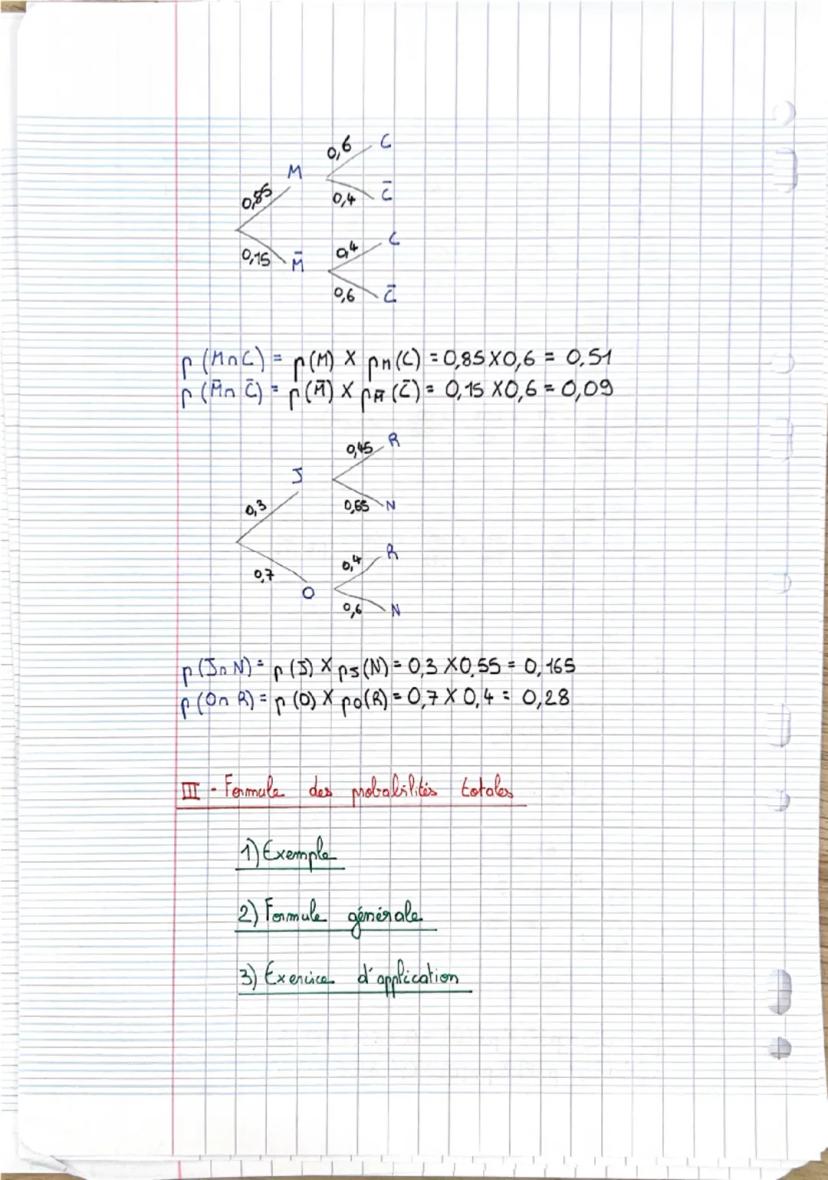 0,6 C
M
0,85
0,4 C̄
0,15 M̄
0,4 C
0,6 C̄
p (M∩C) = p(M) × pM(C) = 0,85 × 0,6 = 0,51
p (M̄∩ C̄) = p(M̄) × pM̄(C̄) = 0,15 × 0,6 = 0,09
0,45 R
J
0,3
N
0,7
0,4 R
O
0,6 N
p (J∩N) = p(J) × pJ(N) = 0,3 × 0,55 = 0,165
p (O∩R) = p(O) × pO(R) = 0,7 × 0,4 = 0,28
III - Formule des probabilités totales
1) Exemple
2) Formule générale
3) Exercice d'application